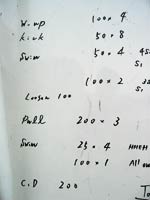 W-up 100 × 4
Kick 50 × 8
Swim 50 × 4
100 × 2
Loosen 100
Pull 200 × 3
Swim 25 × 4
100 × 1 All ou
C.D 200